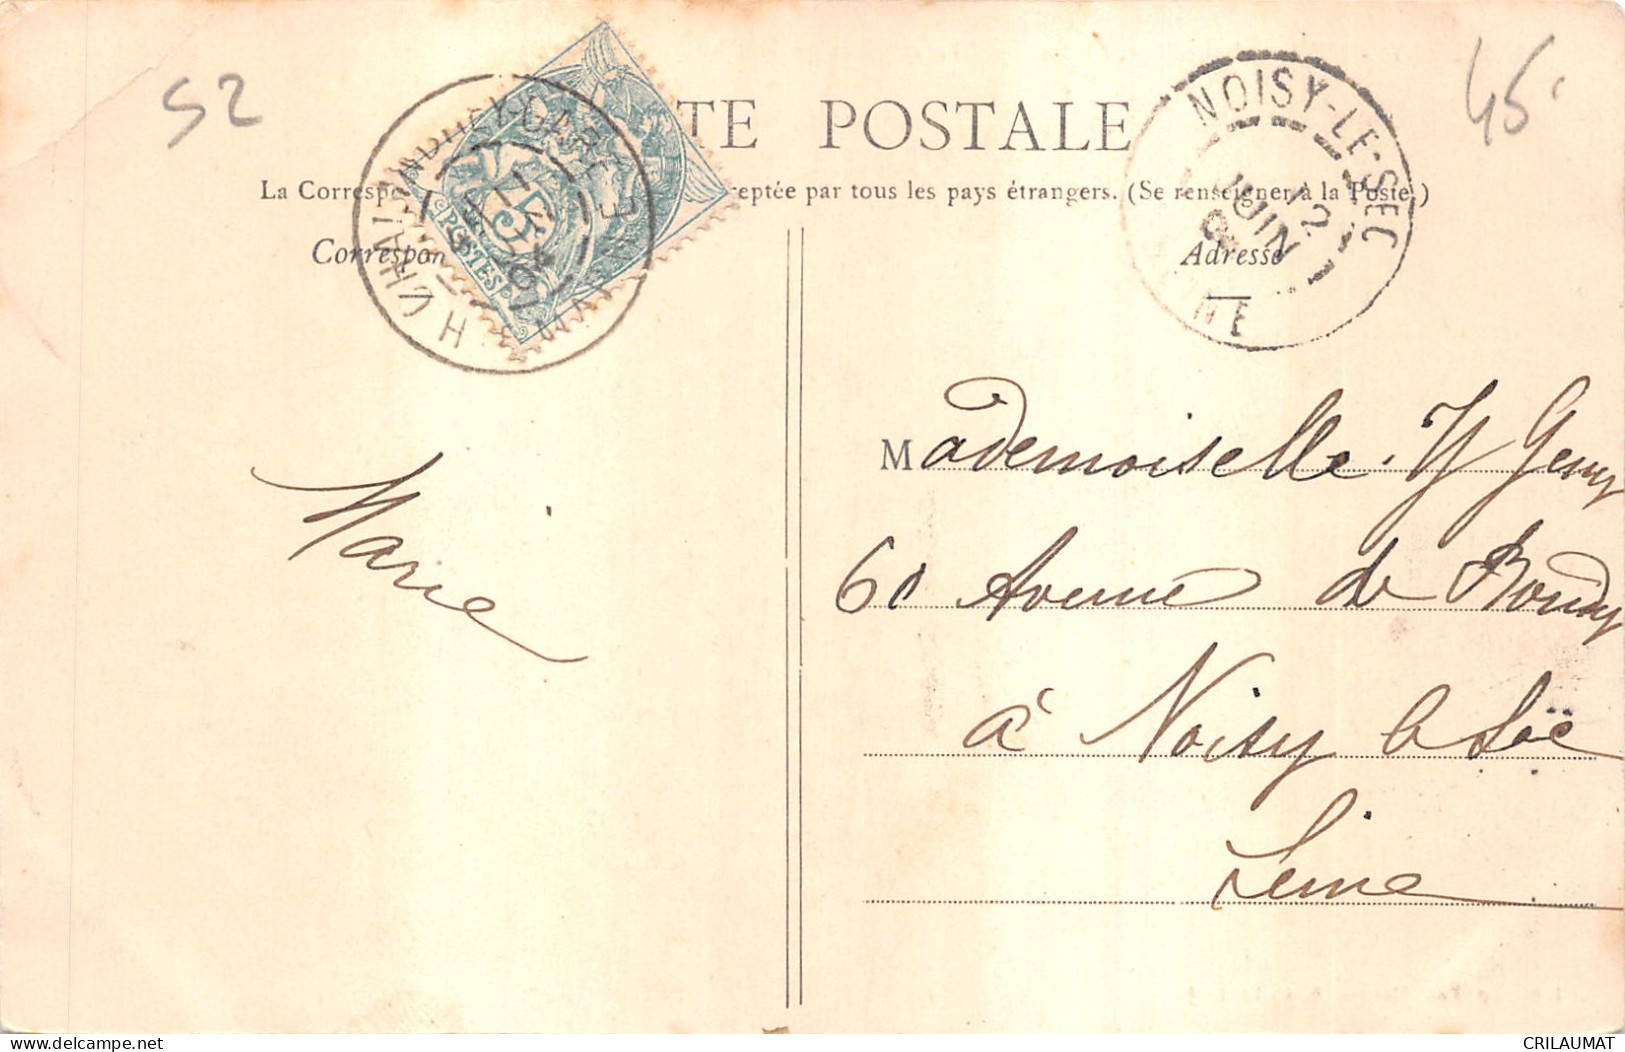 52
45
TE POSTALE
La Correspo ceptée par tous les pays étrangers. (Se renseigner à la Poste.)
Correspon
Adresse
POSTES
5
GARE
MARNE
11
04
NOISY-LE-SEC
12
JUIN
04
SEINE
Marie
Mademoiselle. Y Geny
60 Avenue de Bondy
à Noisy le Sec
Seine
CRILAUMAT